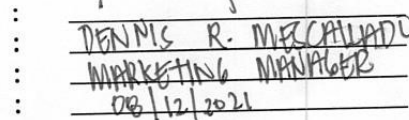 : DENNIS R. MESCALLADO
: MARKETING MANAGER
: 08/12/2021